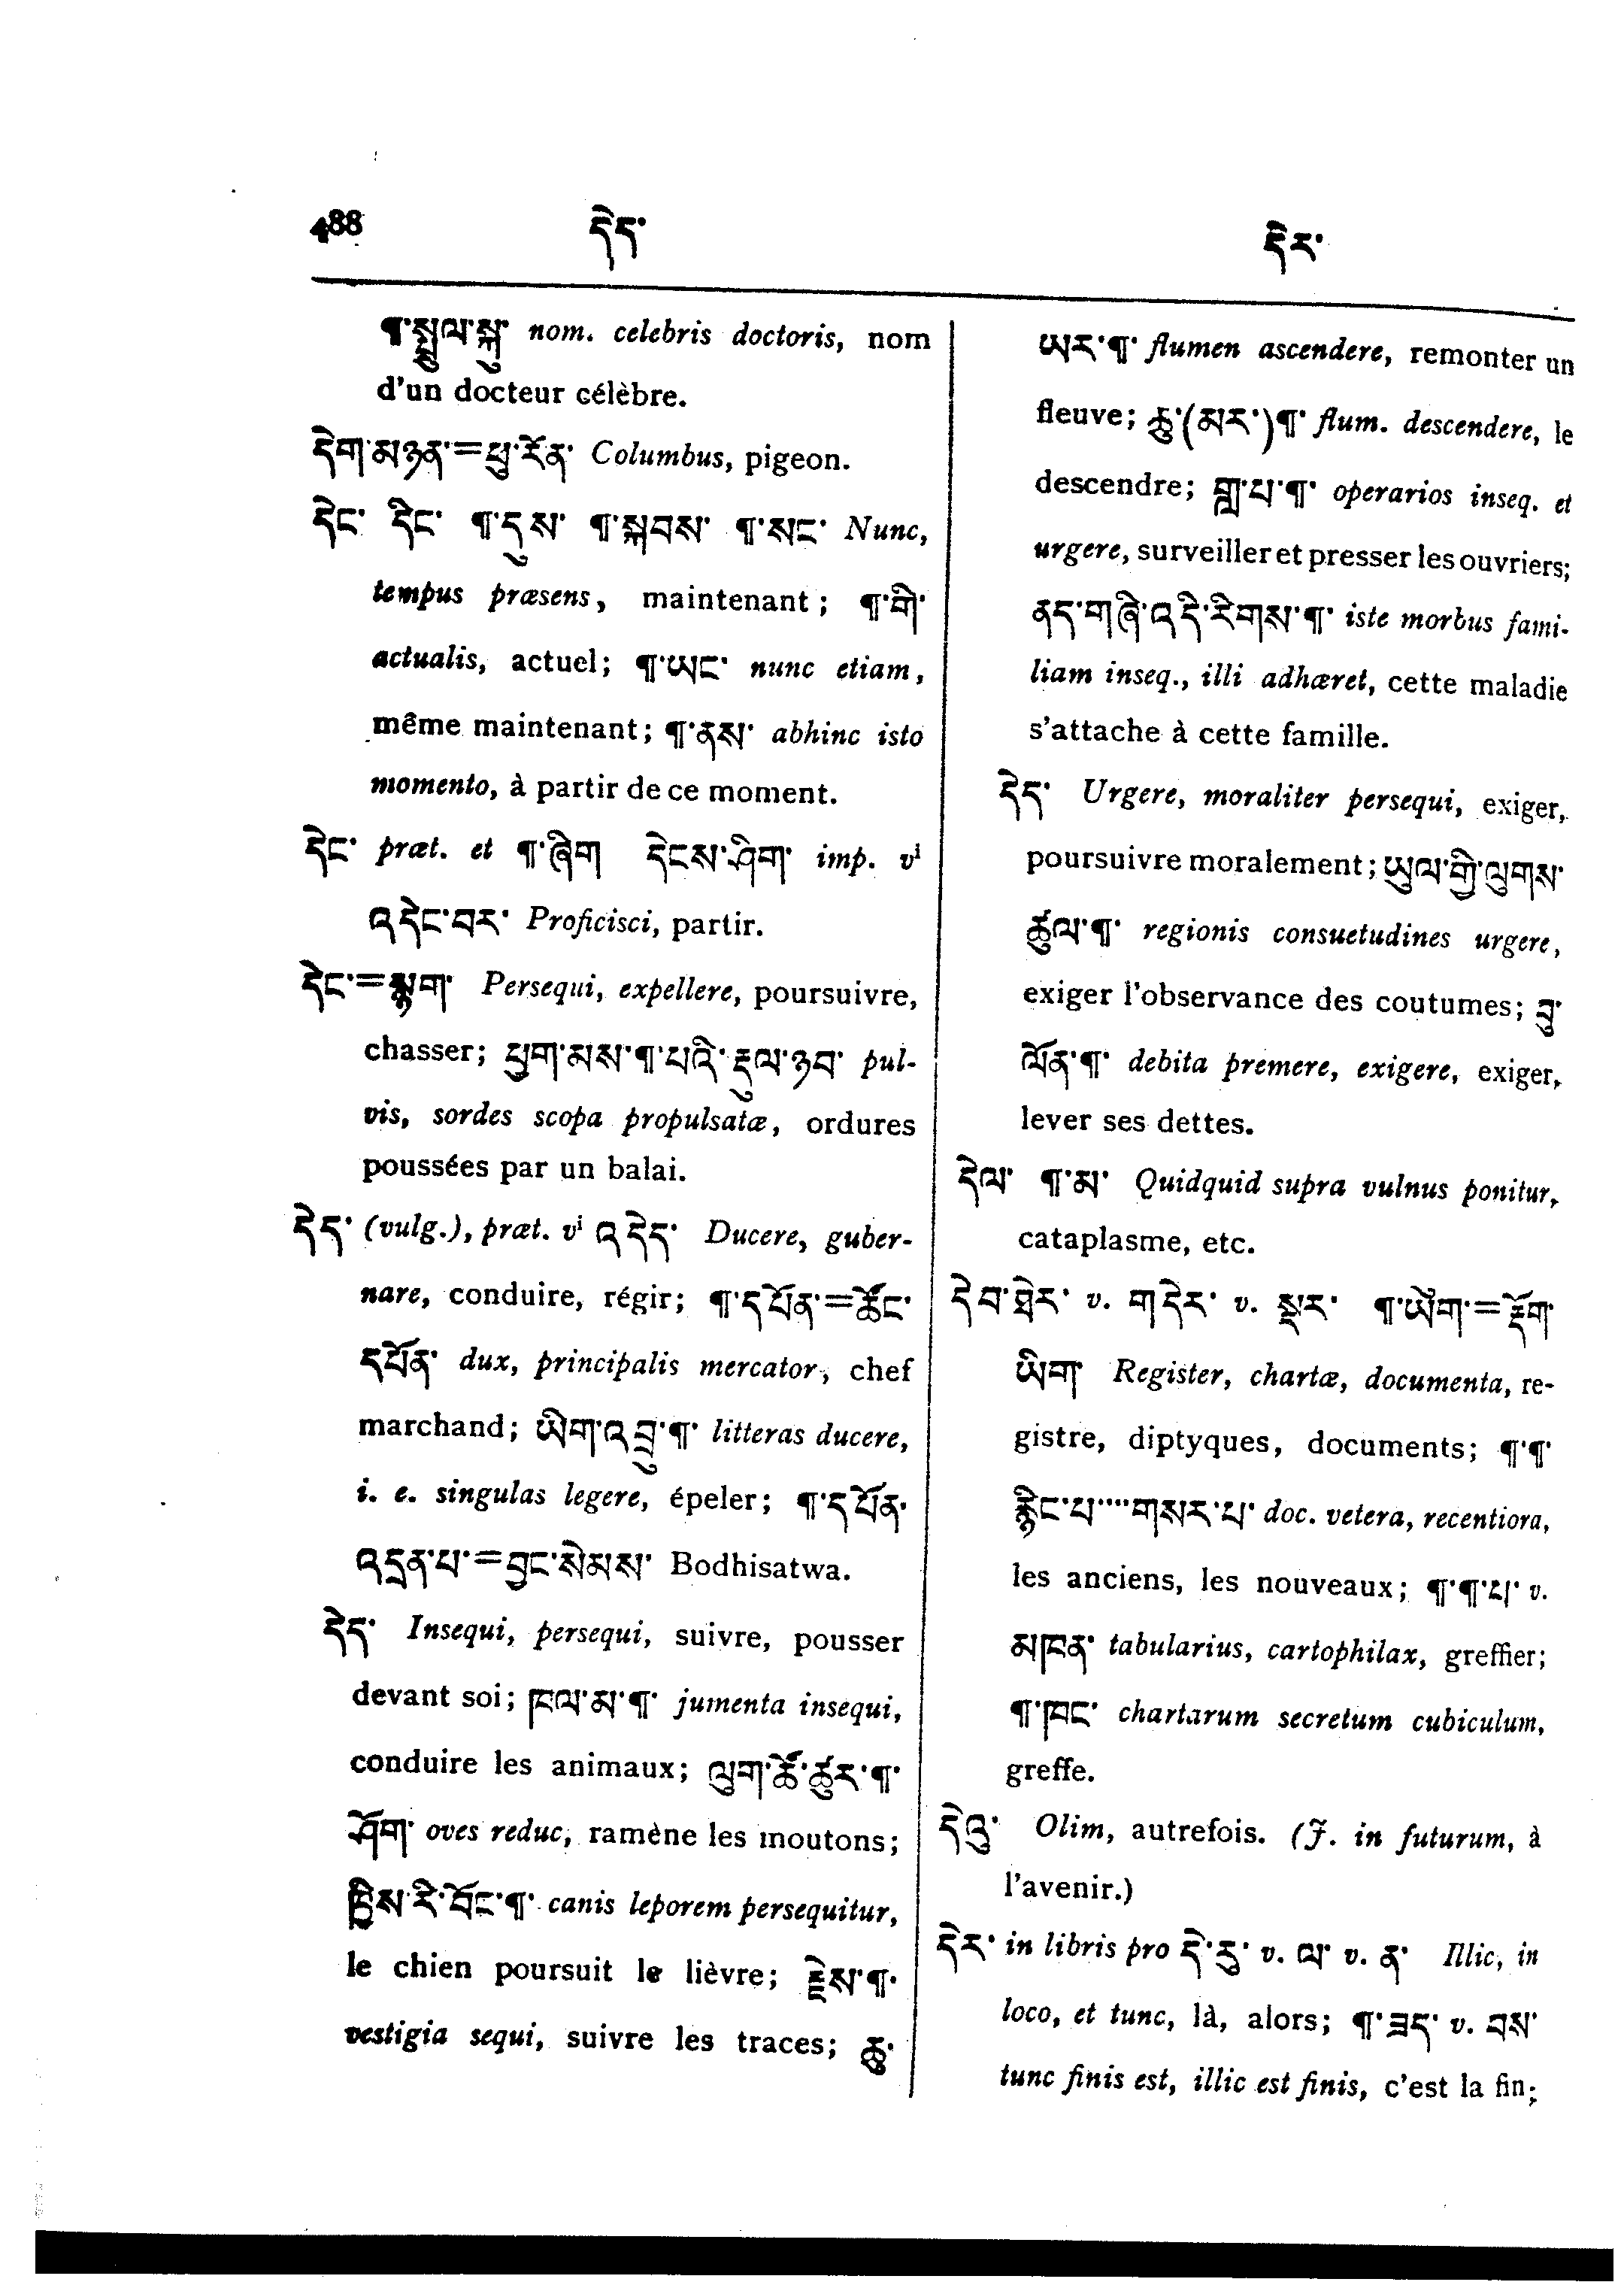 488 དེད་ དེར་
¶་སྤྲུལ་སྐུ་ nom. celebris doctoris, nom
d'un docteur célèbre.
དེག་མཉན་=ཕུ་རོན་ Columbus, pigeon.
དེང་ དིང་ ¶་དུས་ ¶་སྐབས་ ¶་སང་ Nunc,
tempus præsens, maintenant; ¶་གི་
actualis, actuel; ¶་ཡང་ nunc etiam,
même maintenant; ¶་ནས་ abhinc isto
momento, à partir de ce moment.
དེང་ præt. et ¶་ཞིག དེངས་ཤིག་ imp. vⁱ
འདེང་བར་ Proficisci, partir.
དེང་=སྙག་ Persequi, expellere, poursuivre,
chasser; ཕྱག་མས་¶་པའི་རྡུལ་ཉབ་ pul-
vis, sordes scopa propulsatæ, ordures
poussées par un balai.
དེད་ (vulg.), præt. vⁱ འདེད་ Ducere, guber-
nare, conduire, régir; ¶་དཔོན་=ཚོང་
དཔོན་ dux, principalis mercator, chef
marchand; ཡིག་འབྲུ་¶་ litteras ducere,
i. e. singulas legere, épeler; ¶་དཔོན་
འདྲན་པ་=བྱང་སེམས་ Bodhisatwa.
དེད་ Insequi, persequi, suivre, pousser
devant soi; ཁལ་མ་¶་ jumenta insequi,
conduire les animaux; ལུག་ཚོ་ཚུར་¶་
ཤོག་ oves reduc, ramène les moutons;
ཁྱིས་རི་བོང་¶་ canis leporem persequitur,
le chien poursuit le lièvre; རྗེས་¶་
vestigia sequi, suivre les traces; ཆུ་
ཡར་¶་ flumen ascendere, remonter un
fleuve; ཆུ་(མར་)¶་ flum. descendere, le
descendre; གླ་པ་¶་ operarios inseq. et
urgere, surveiller et presser les ouvriers;
ནད་གཞི་འདི་རིགས་¶་ iste morbus fami-
liam inseq., illi adhæret, cette maladie
s'attache à cette famille.
དེད་ Urgere, moraliter persequi, exiger,
poursuivre moralement; ཡུལ་གྱི་ལུགས་
ཚུལ་¶་ regionis consuetudines urgere,
exiger l'observance des coutumes; བུ་
ལོན་¶་ debita premere, exigere, exiger,
lever ses dettes.
དེལ་ ¶་མ་ Quidquid supra vulnus ponitur,
cataplasme, etc.
དེབ་ཐེར་ v. གདེར་ v. སྡར་ ¶་ཡིག་=རྡོག་
ཡིག་ Register, chartæ, documenta, re-
gistre, diptyques, documents; ¶་¶་
རྙིང་པ་····གསར་པ་ doc. vetera, recentiora,
les anciens, les nouveaux; ¶་¶་པ་ v.
མཁན་ tabularius, cartophilax, greffier;
¶་ཁང་ chartarum secretum cubiculum,
greffe.
དེའུ་ Olim, autrefois. (J. in futurum, à
l'avenir.)
དེར་ in libris pro དེ་རུ་ v. ལ་ v. ན་ Illic, in
loco, et tunc, là, alors; ¶་ཟད་ v. བས་
tunc finis est, illic est finis, c'est la fin;